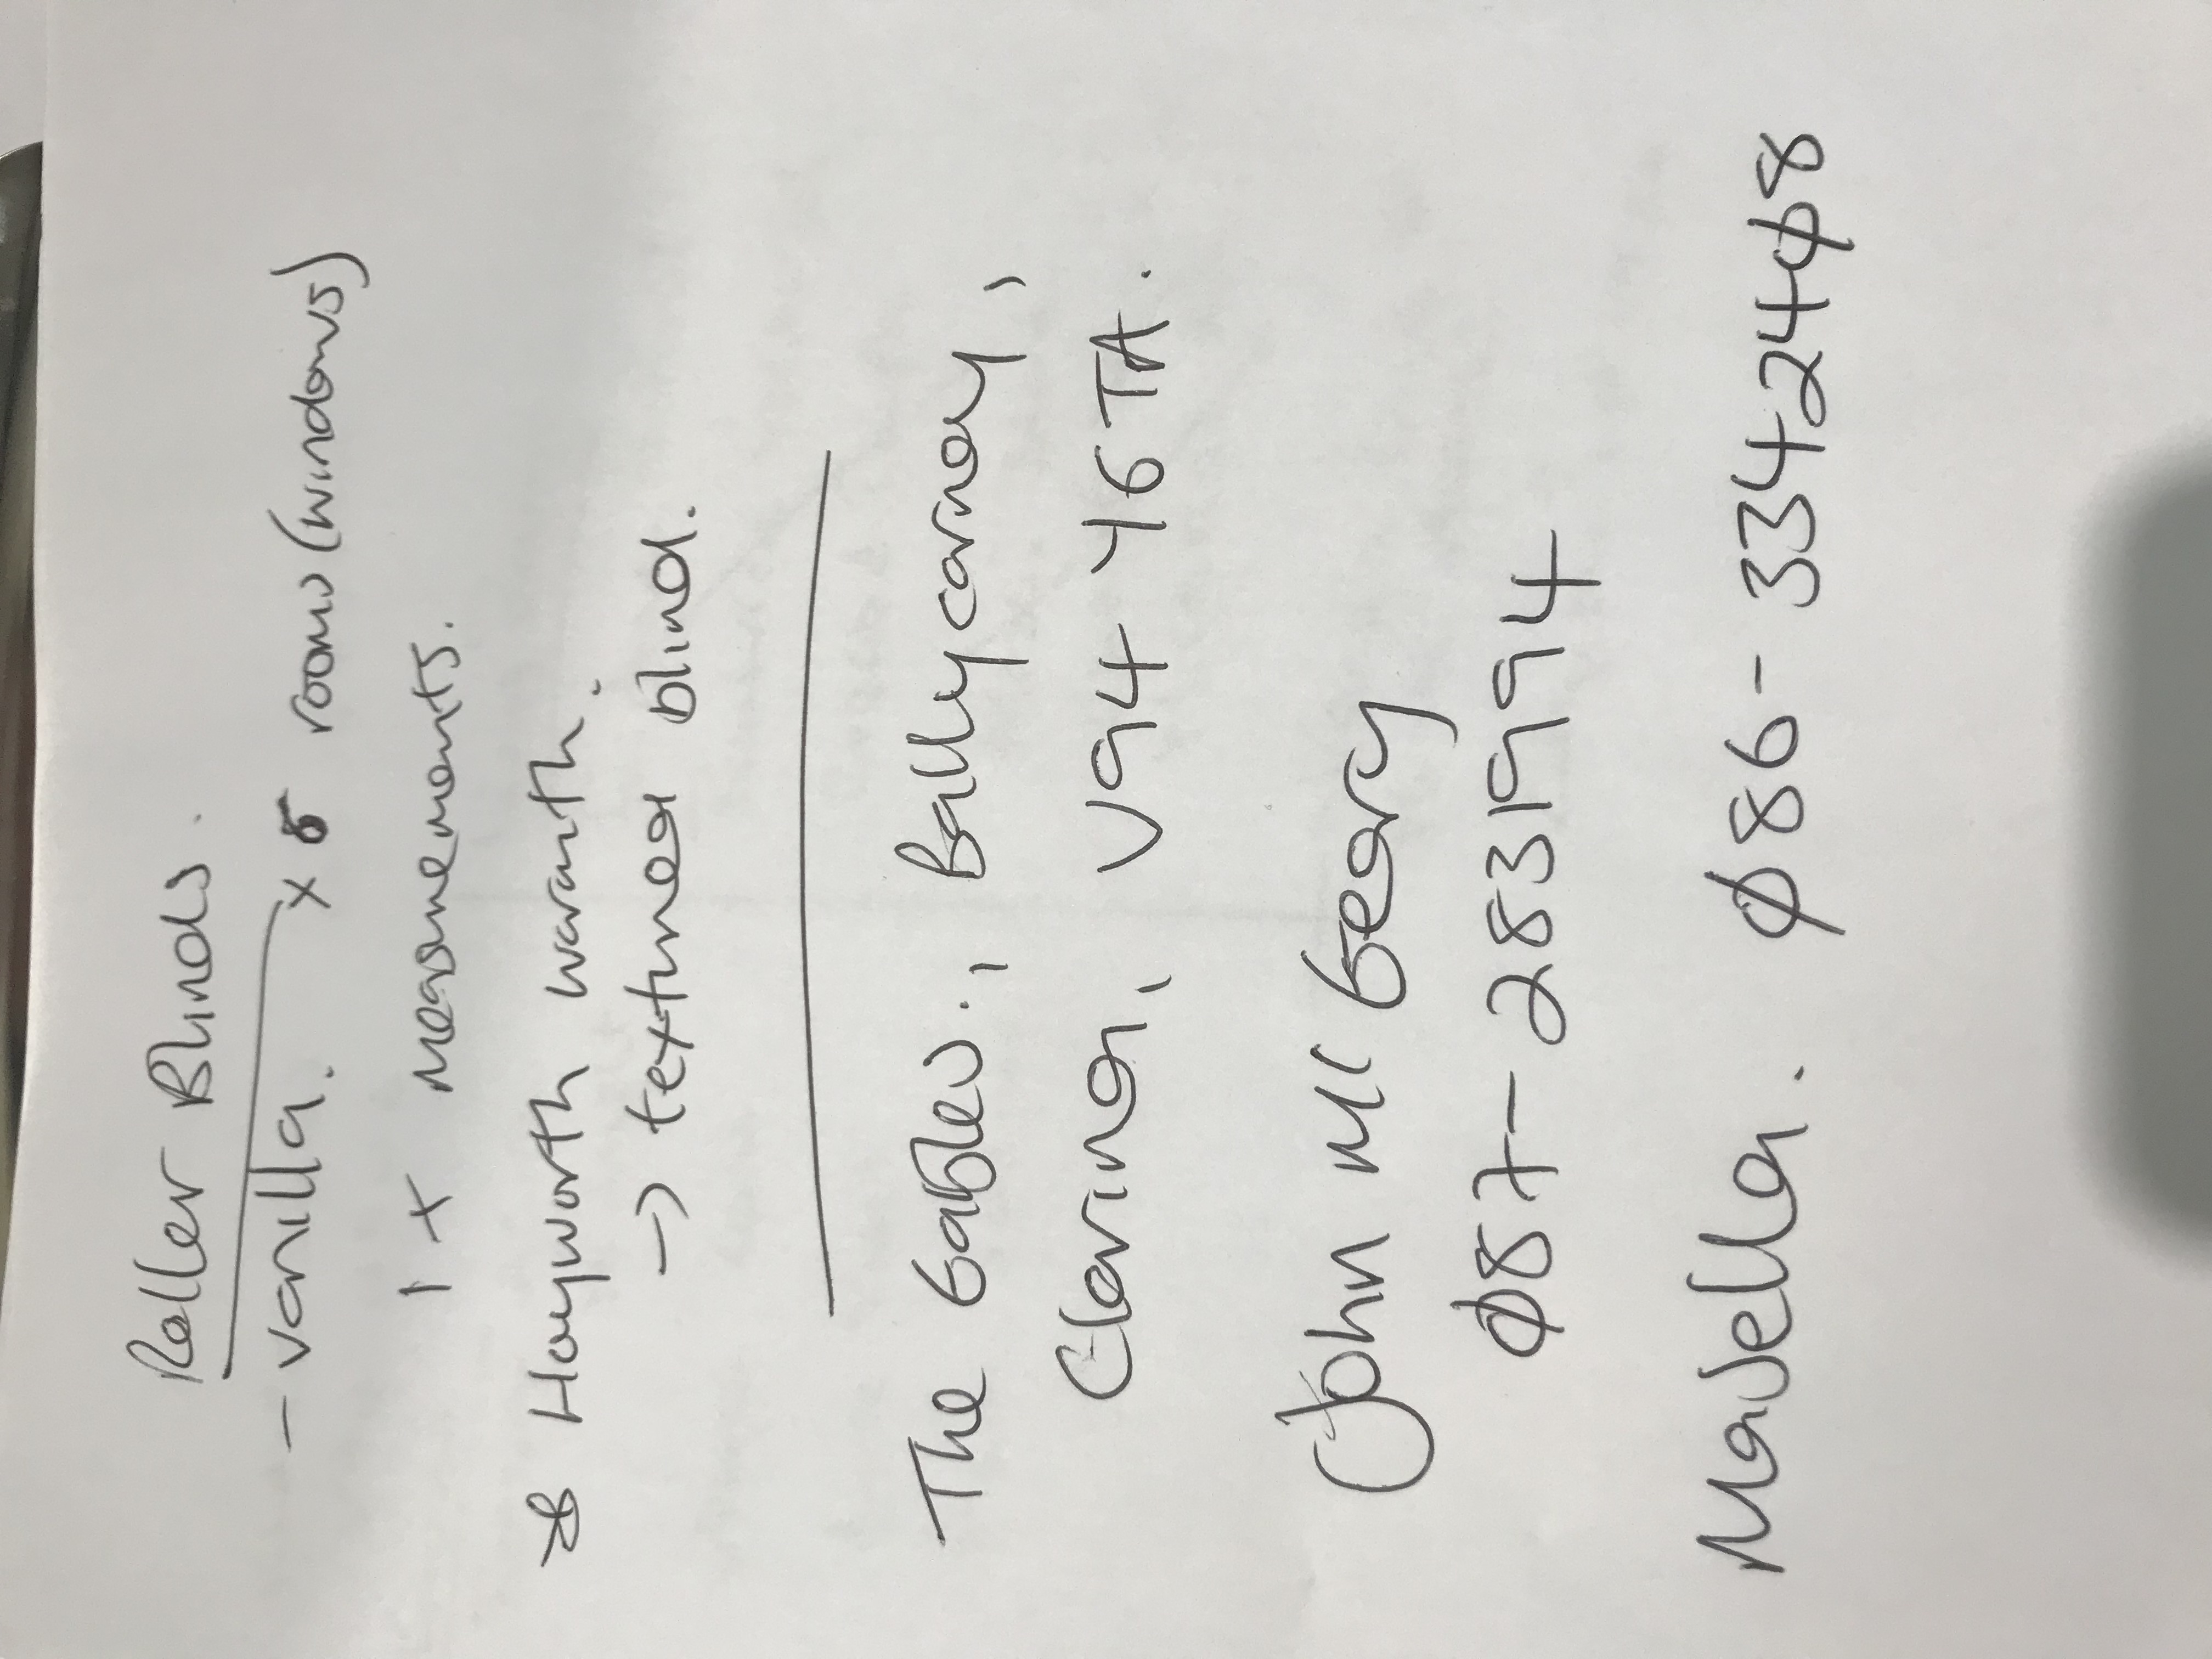 Roller Blinds.
- vanilla. x 5 rooms (windows)
1 x measurements.
* Hayworth warmth.
→ textured blind.
The Gables., Ballycarney,
Clarina, V94 Y6TA.
John Mc Geary
087-2831994
Majella. 086-3342408